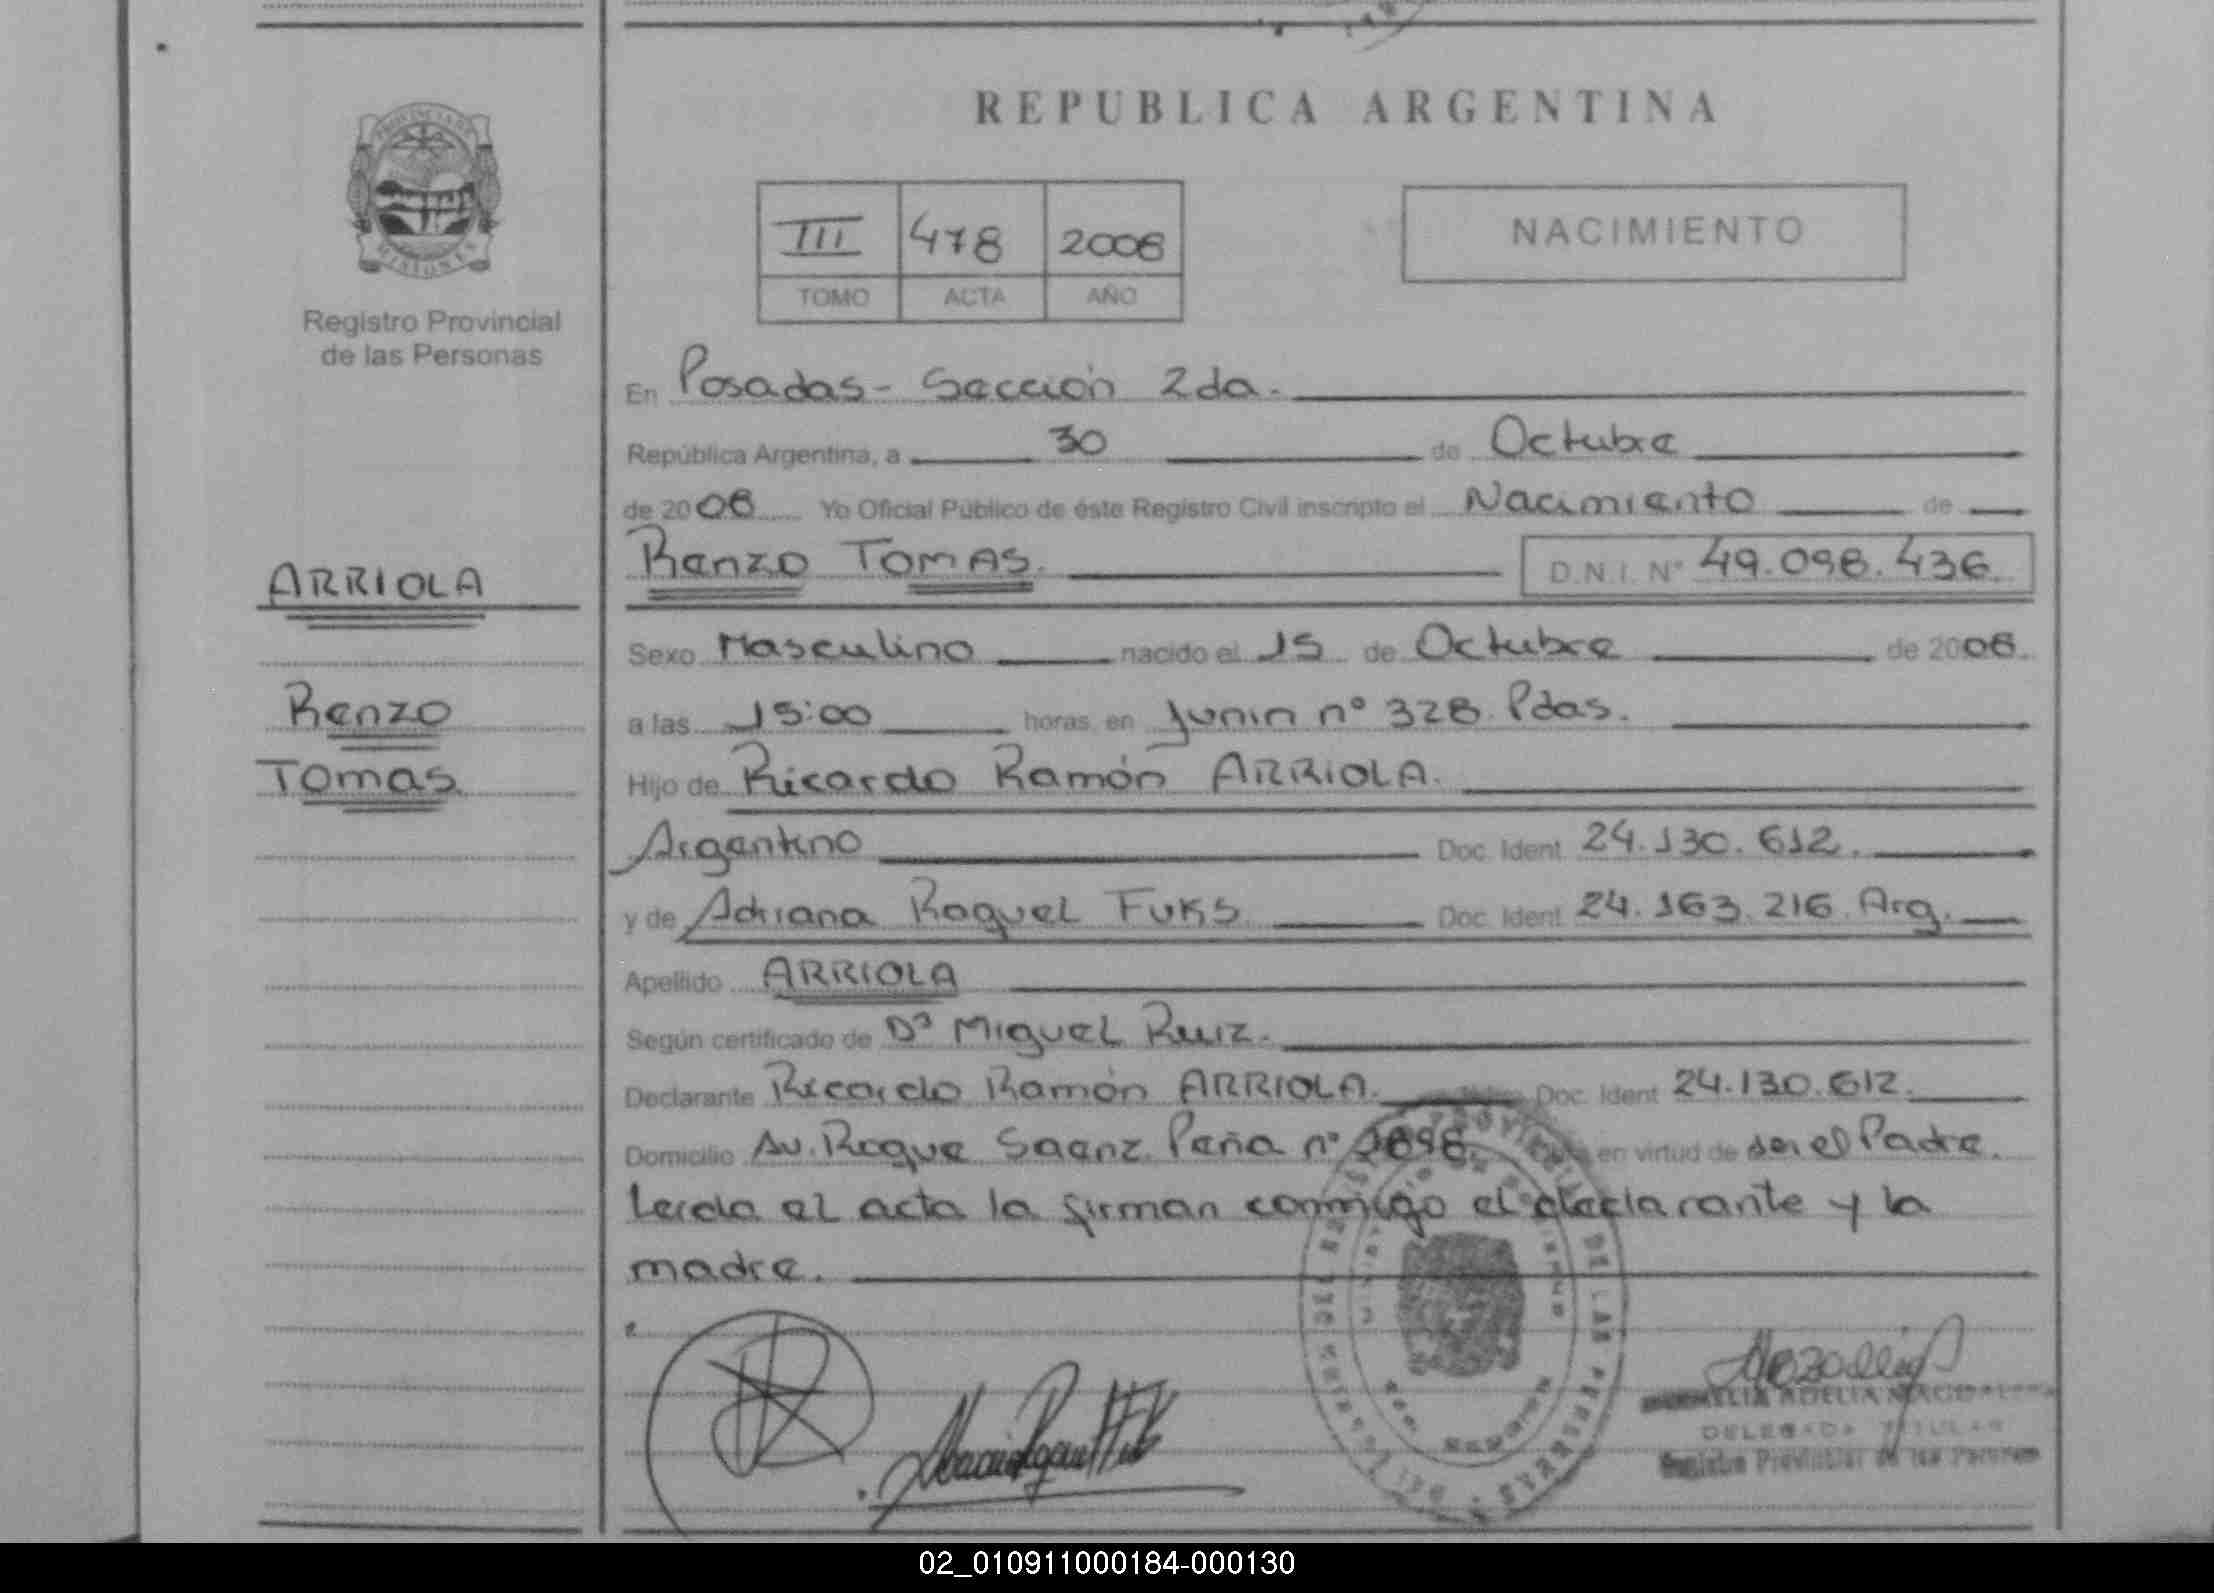 REPUBLICA ARGENTINA
PROVINCIA DE
MISIONES
Registro Provincial
de las Personas
III 478 2008
TOMO ACTA AÑO
NACIMIENTO
En Posadas - Sección 2da.
República Argentina, a 30 de Octubre
de 2008 Yo Oficial Público de éste Registro Civil inscripto el Nacimiento de
Renzo TOMAS. D.N.I. Nº 49.098.436
ARRIOLA
Renzo
Tomas.
Sexo Masculino nacido el 15 de Octubre de 2008.
a las 15:00 horas, en Junin nº 328. Pdas.
Hijo de Ricardo Ramón ARRIOLA.
Argentino Doc. Ident. 24.130.612.
y de Adriana Raquel FUKS Doc. Ident. 24.163.216. Arg.
Apellido ARRIOLA
Según certificado de Dr Miguel Ruiz.
Declarante Ricardo Ramón ARRIOLA. Doc. Ident 24.130.612.
Domicilio Av. Roque Saenz Peña nº en virtud de ser el Padre.
Leida el acta la firman conmigo el declarante y la
madre.
DE LAS PERSONAS
ADELIA MAGDALENA
DELEGADA TITULAR
Registro Provincial de las Personas
02_010911000184-000130